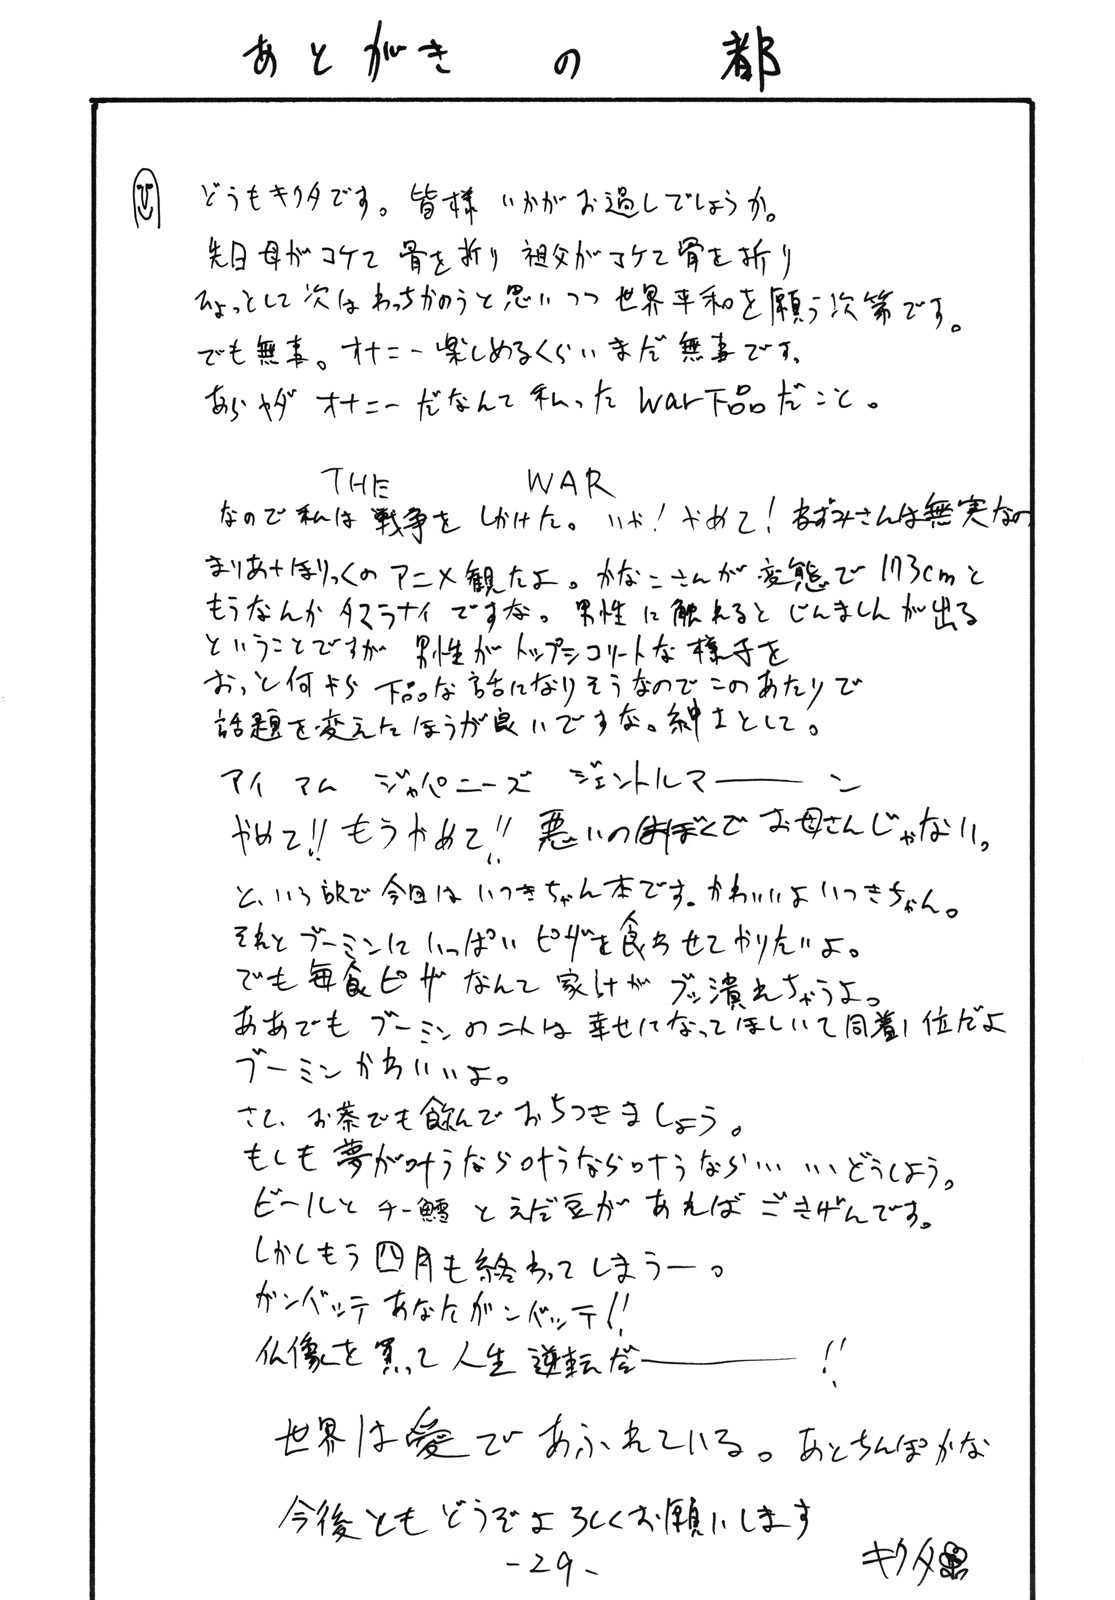 あとがきの都
どうもキクタです。皆様いかがお過しでしょうか。
先日母がコケて骨を折り祖父がコケて骨を折り
ひょっとして次はわっちかのうと思いつつ世界平和を願う次第です。
でも無事。オナニー楽しめるくらいまだ無事です。
あらヤダオナニーだなんて私ったwar下品だこと。
THE WAR
なので私は戦争をしかけた。いや！やめて！ねずみさんは無実なの
まりあ†ほりっくのアニメ観たよ。かなこさんが変態で173cmと
もうなんかタマラナイですな。男性に触れるとじんましんが出る
ということですが男性がトップシコリートな様子を
おっと何やら下品な話になりそうなのでこのあたりで
話題を変えたほうが良いですな。紳士として。
アイ アム ジャパニーズ ジェントルマーーン
やめて!!もうやめて!!悪いのはぼくでお母さんじゃない。
と、いう訳で今回はいつきちゃん本です。かわいいよいつきちゃん。
それとブーミンにいっぱいピザを食わせてやりたいよ。
でも毎食ピザなんて家計がブッ潰れちゃうよ。
ああでもブーミンの二人は幸せになってほしいて同着1位だよ
ブーミンかわいいよ。
さて、お茶でも飲んでおちつきましょう。
もしも夢が叶うなら叶うなら叶うなら……どうしよう。
ビールとチー鱈とえだ豆があればごきげんです。
しかしもう四月も終わってしまうー。
ガンバッテあなたガンバッテ!!
仏像を買って人生逆転だーーー!!
世界は愛であふれている。あとちんぽかな
今後ともどうぞよろしくお願いします
キクタ
-29-